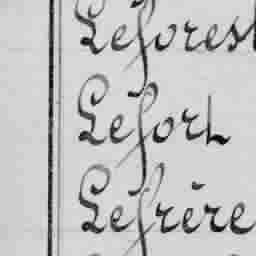 Leforest
Lefort
Lefrère